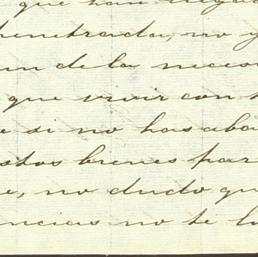 que han llega
penetrada, no y
un de la neces
que vivir con
e si no has aba
stos bienes par
e, no dudo qu
ncias no te l